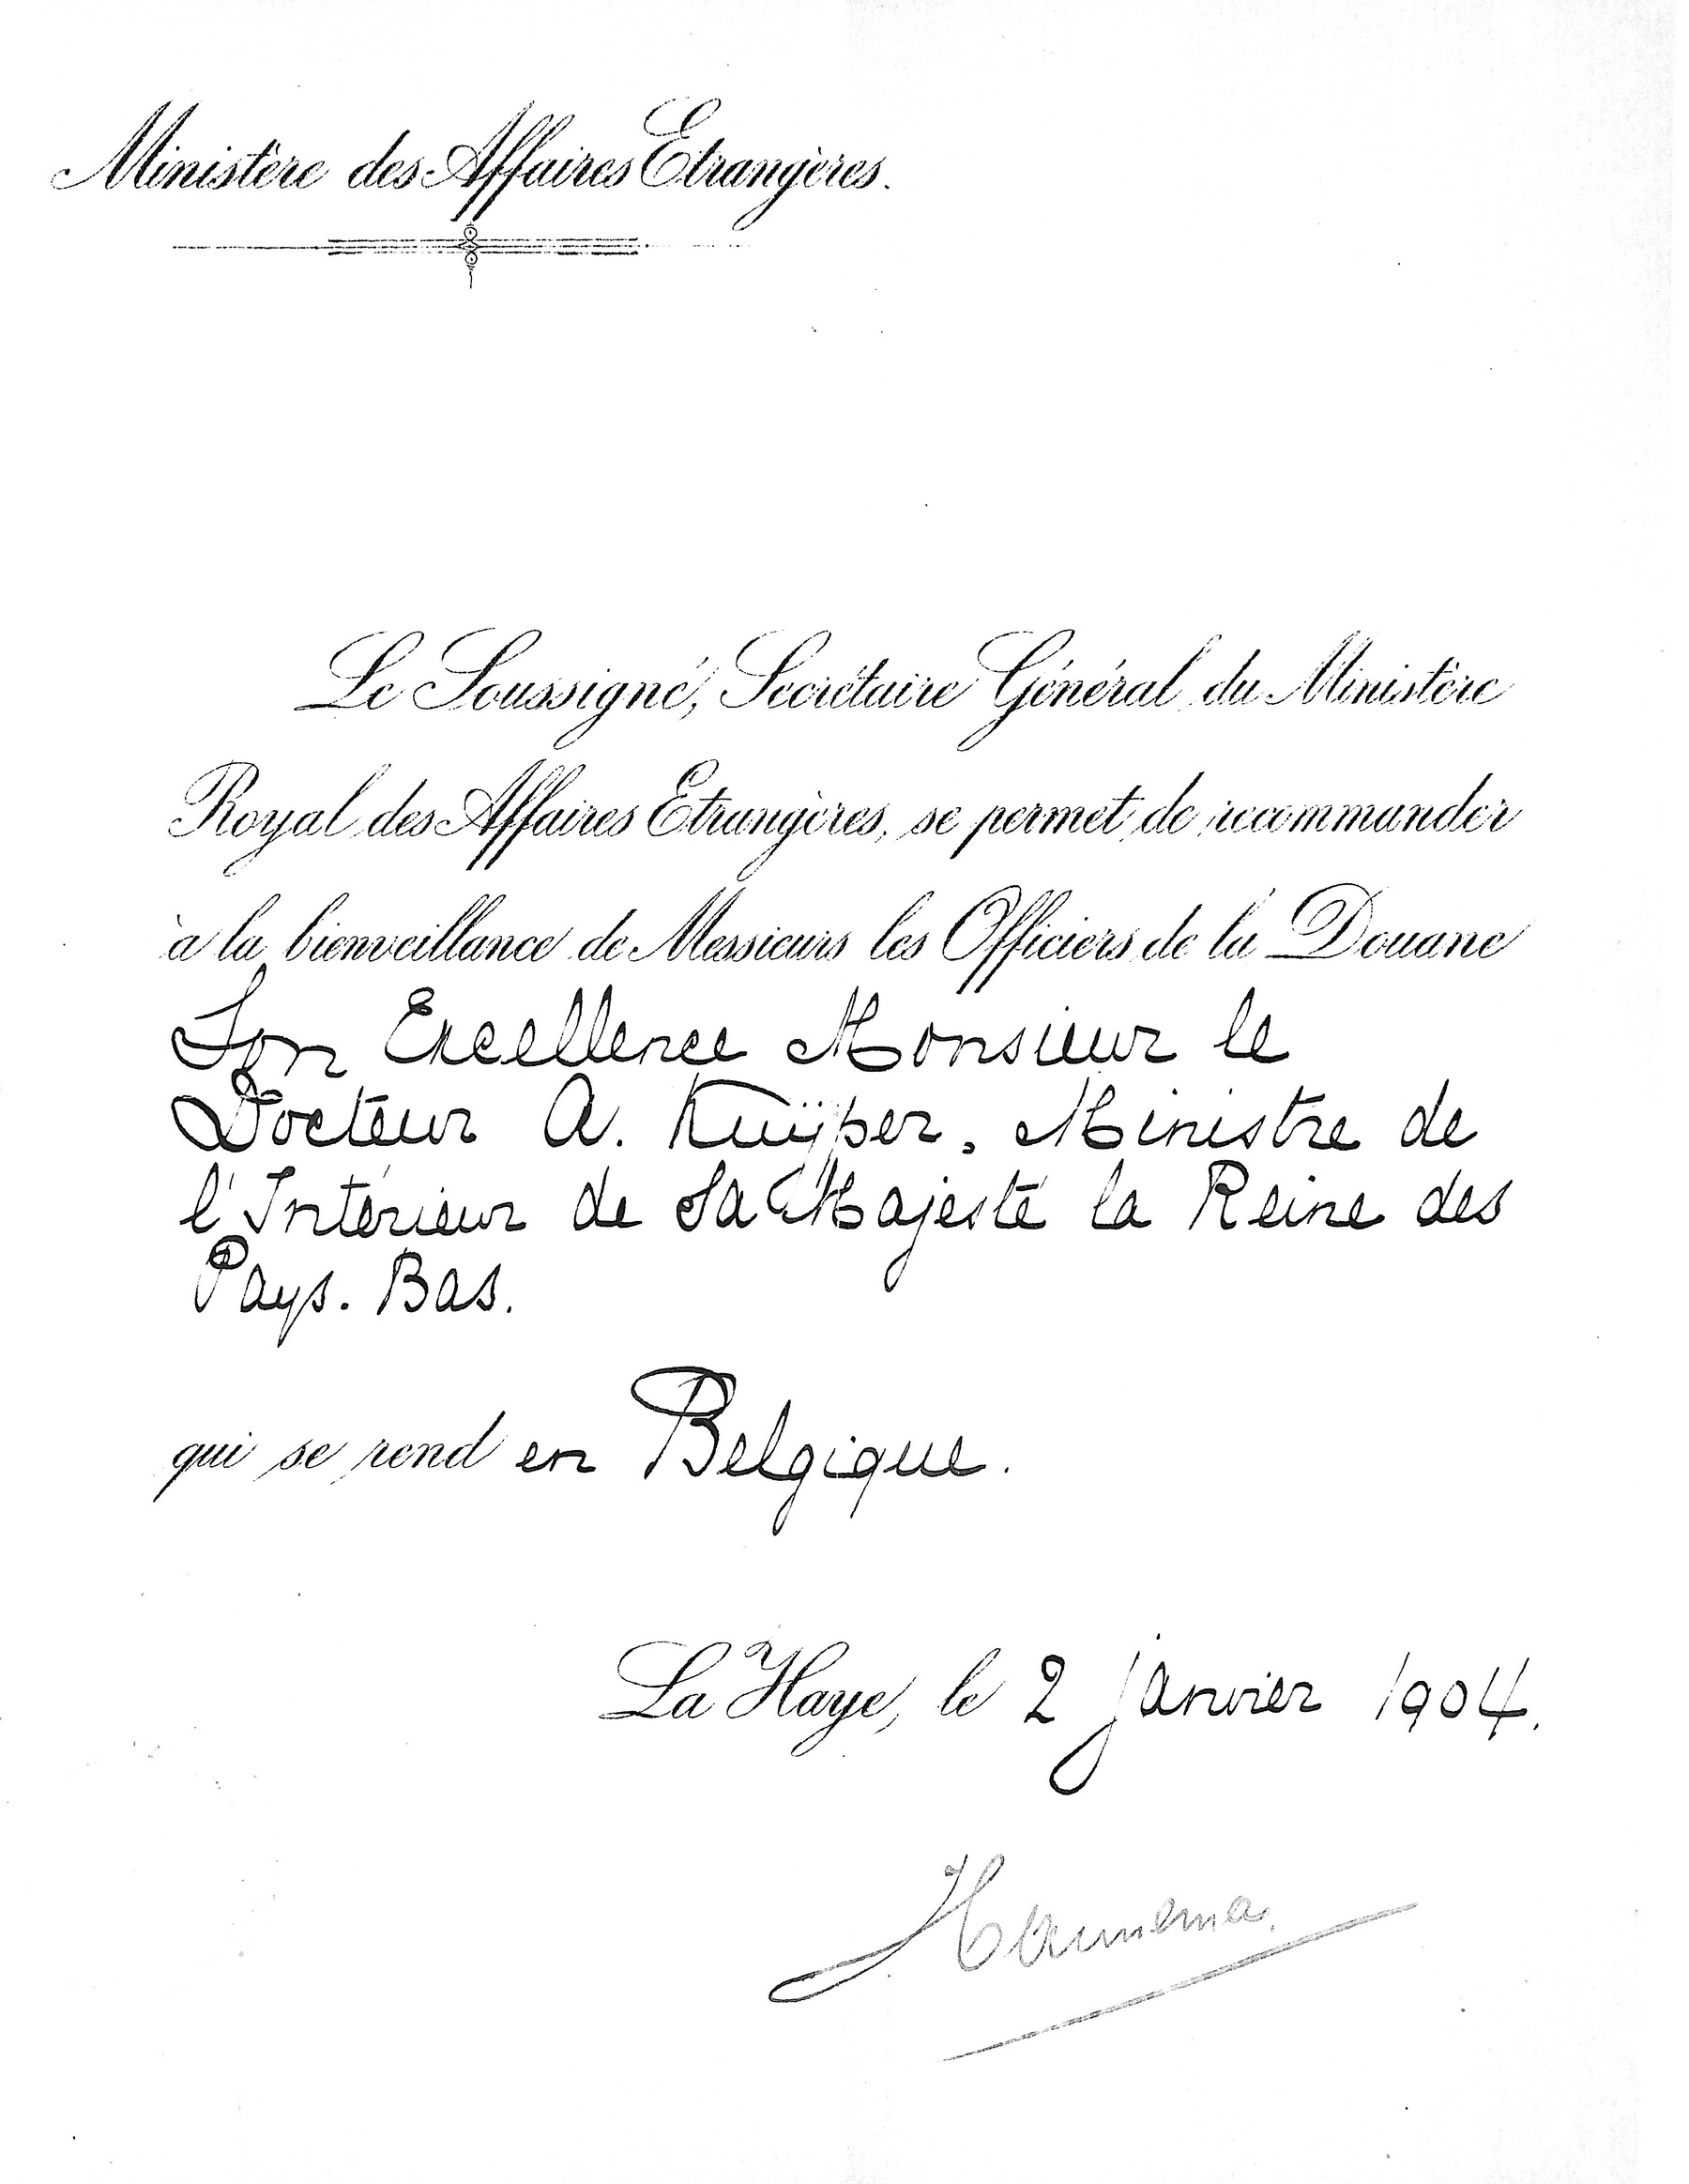 Ministère des Affaires Etrangères.
Le Soussigné, Secrétaire Général du Ministère
Royal des Affaires Etrangères, se permet de recommander
à la bienveillance de Messieurs les Officiers de la Douane
Son Excellence Monsieur le
Docteur A. Kuÿper, Ministre de
l'Intérieur de Sa Majesté la Reine des
Pays. Bas.
qui se rend en Belgique.
La Haye, le 2 janvier 1904.
Hannema.